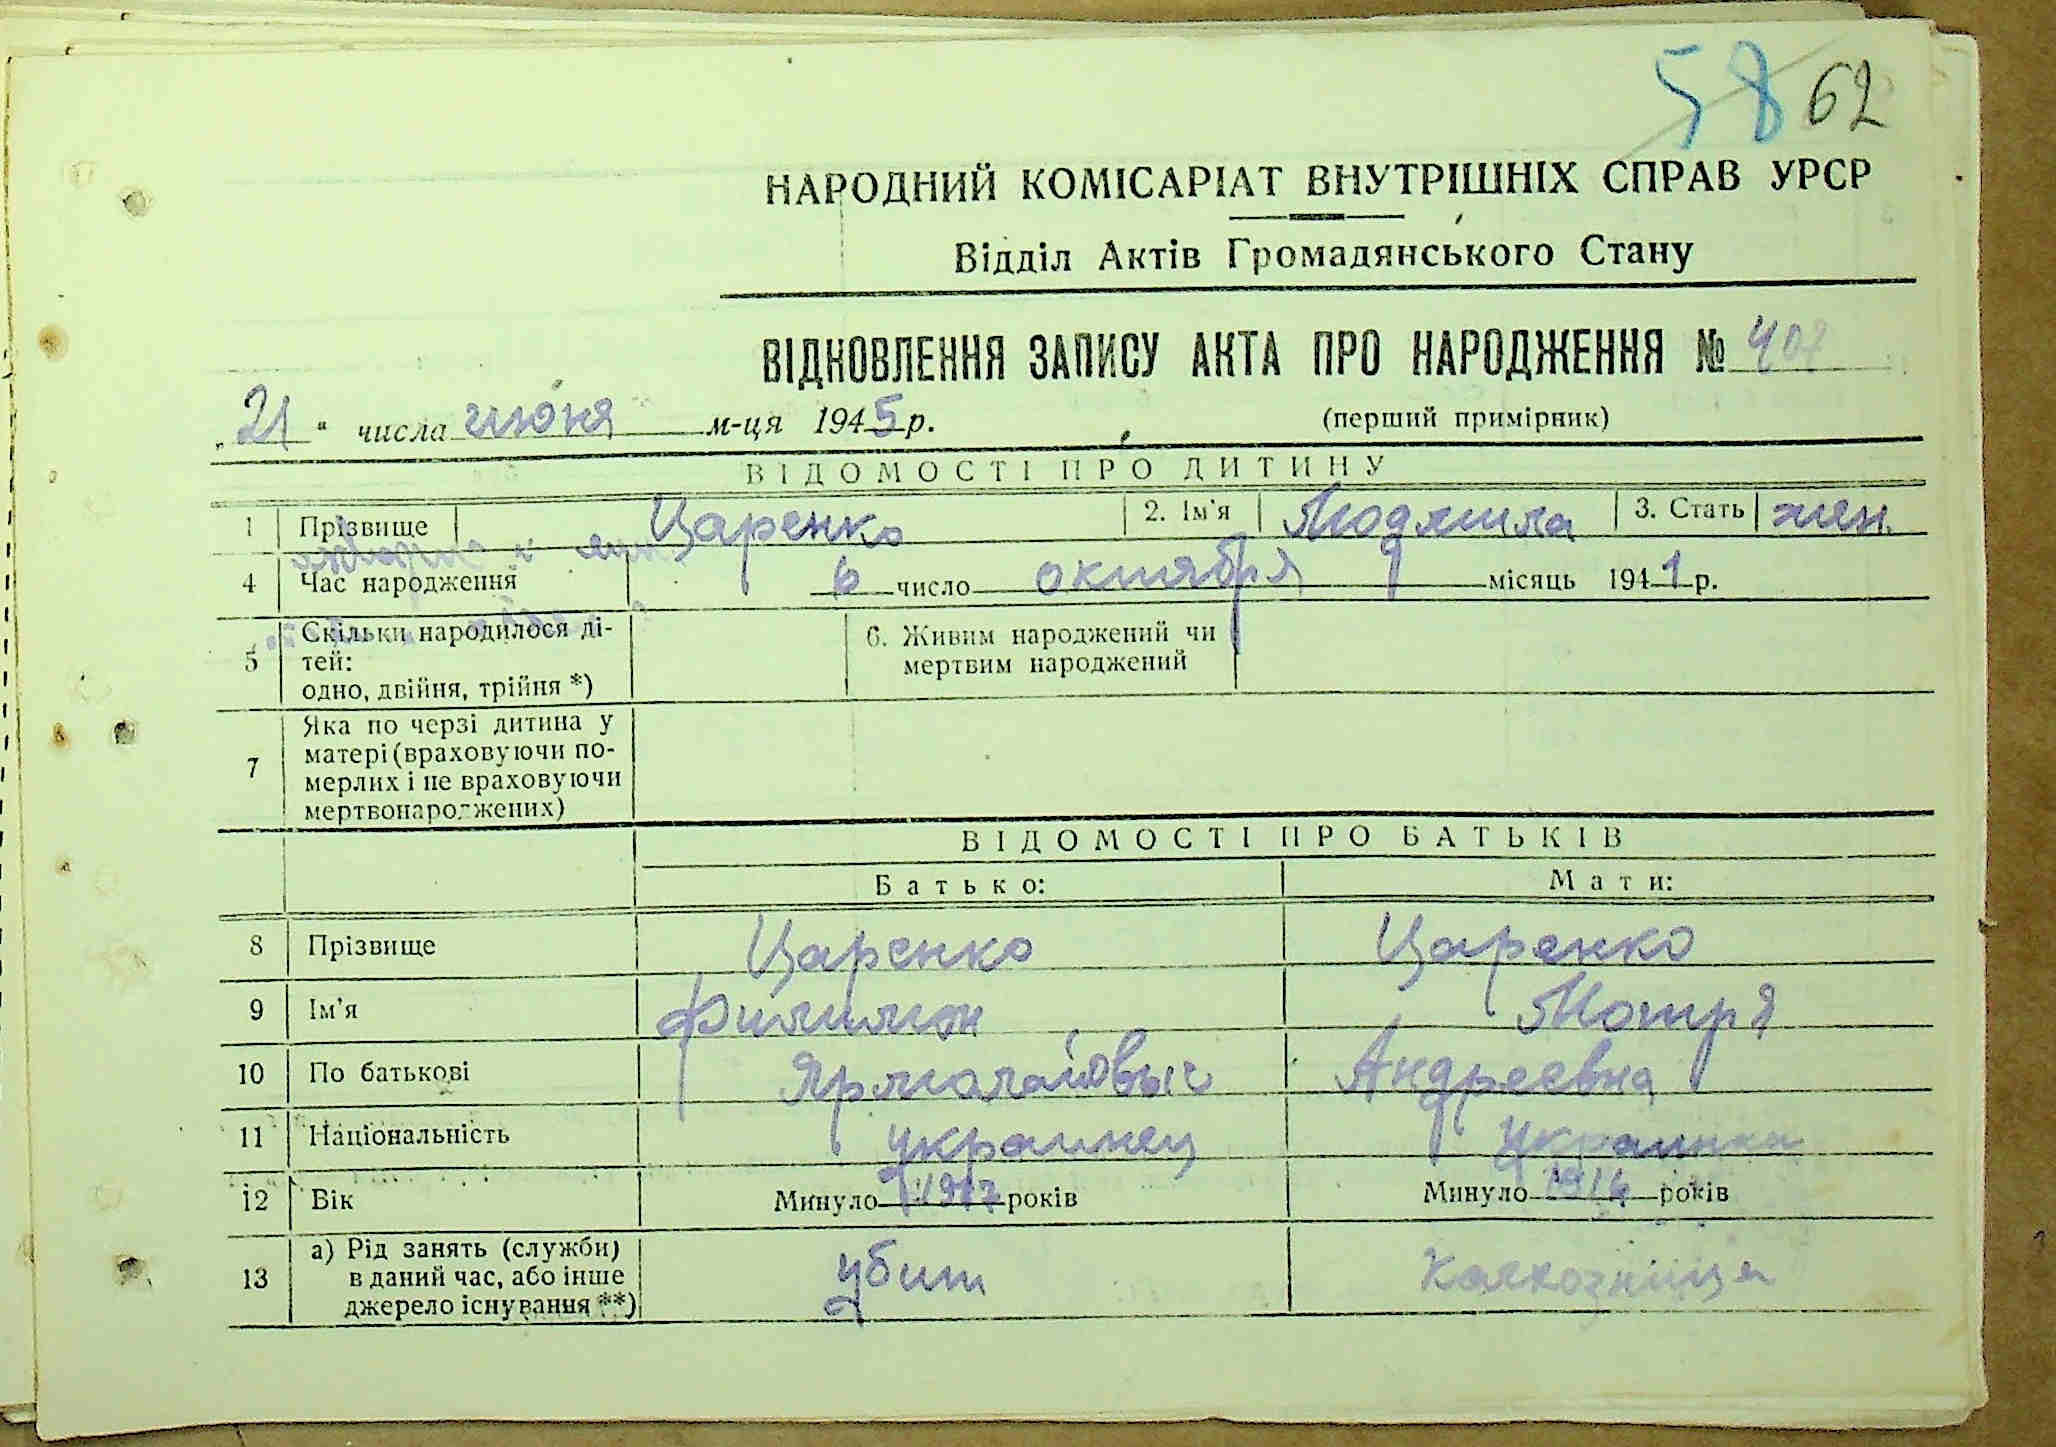 58 62
НАРОДНИЙ КОМІСАРІАТ ВНУТРІШНІХ СПРАВ УРСР
Відділ Актів Громадянського Стану
ВІДНОВЛЕННЯ ЗАПИСУ АКТА ПРО НАРОДЖЕННЯ № 407
„21" числа июня м-ця 1945 р. (перший примірник)
ВІДОМОСТІ ПРО ДИТИНУ
1 Прізвище Царенко 2. Ім'я Людмила 3. Стать жен.
4 Час народження 6 число октября місяць 1941 р.
5 Скільки народилося ді-
тей:
одно, двійня, трійня *)
6. Живим народжений чи
мертвим народжений
7 Яка по черзі дитина у
матері (враховуючи по-
мерлих і не враховуючи
мертвонароджених)
ВІДОМОСТІ ПРО БАТЬКІВ
Батько: Мати:
8 Прізвище Царенко Царенко
9 Ім'я Филимон Мотря
10 По батькові Ярмолаович Андреевна
11 Національність украинец украинка
12 Вік Минуло 1917 років Минуло 1914 років
13 а) Рід занять (служби)
в даний час, або інше
джерело існування **)
убит колхозница